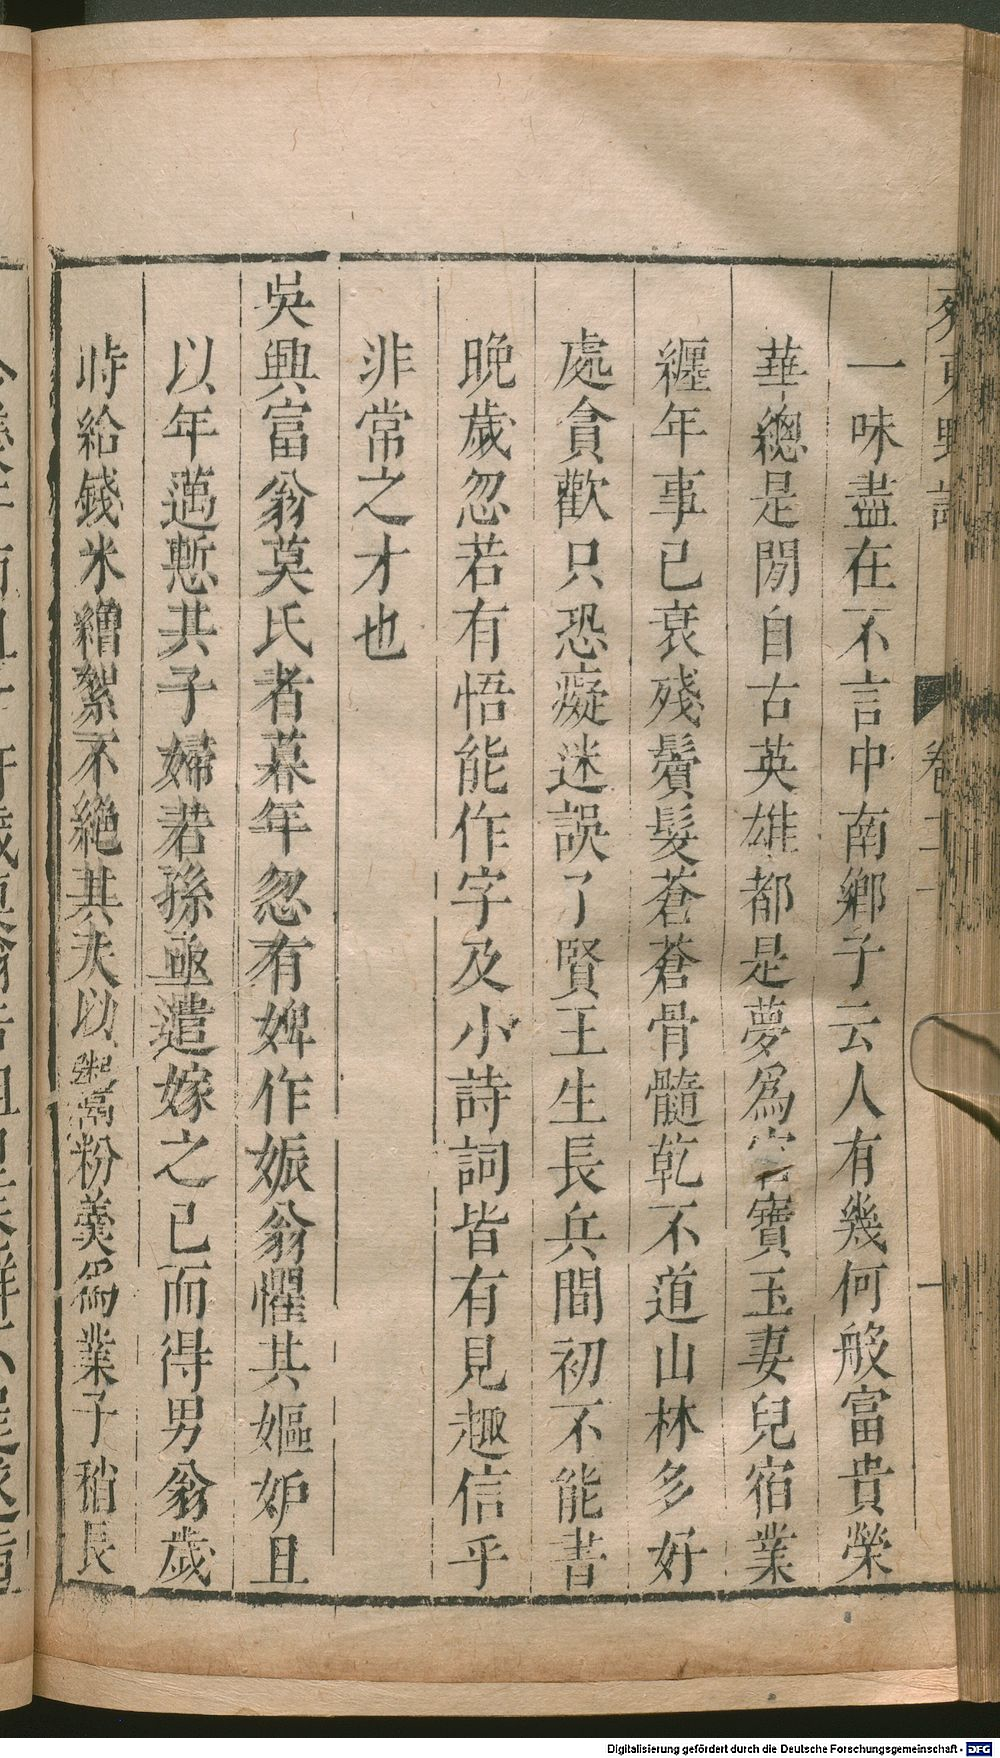 一味盡在不言中南鄉子云人有幾何般富貴榮
華總是閒自古英雄都是夢為官寶玉妻兒宿業
纏年事已衰殘鬢髮蒼蒼骨髓乾不道山林多好
處貪歡只恐癡迷誤了賢王生長兵間初不能書
晚歲忽若有悟能作字及小詩詞皆有見趣信乎
非常之才也
吳興富翁莫氏者暮年忽有婢作娠翁懼其嫗妒且
以年邁慙其子婦若孫亟遣嫁之已而得男翁歲
時給錢米繒絮不絕其夫以粥粉羹為業子稍長
Digitalisierung gefördert durch die Deutsche Forschungsgemeinschaft - DFG